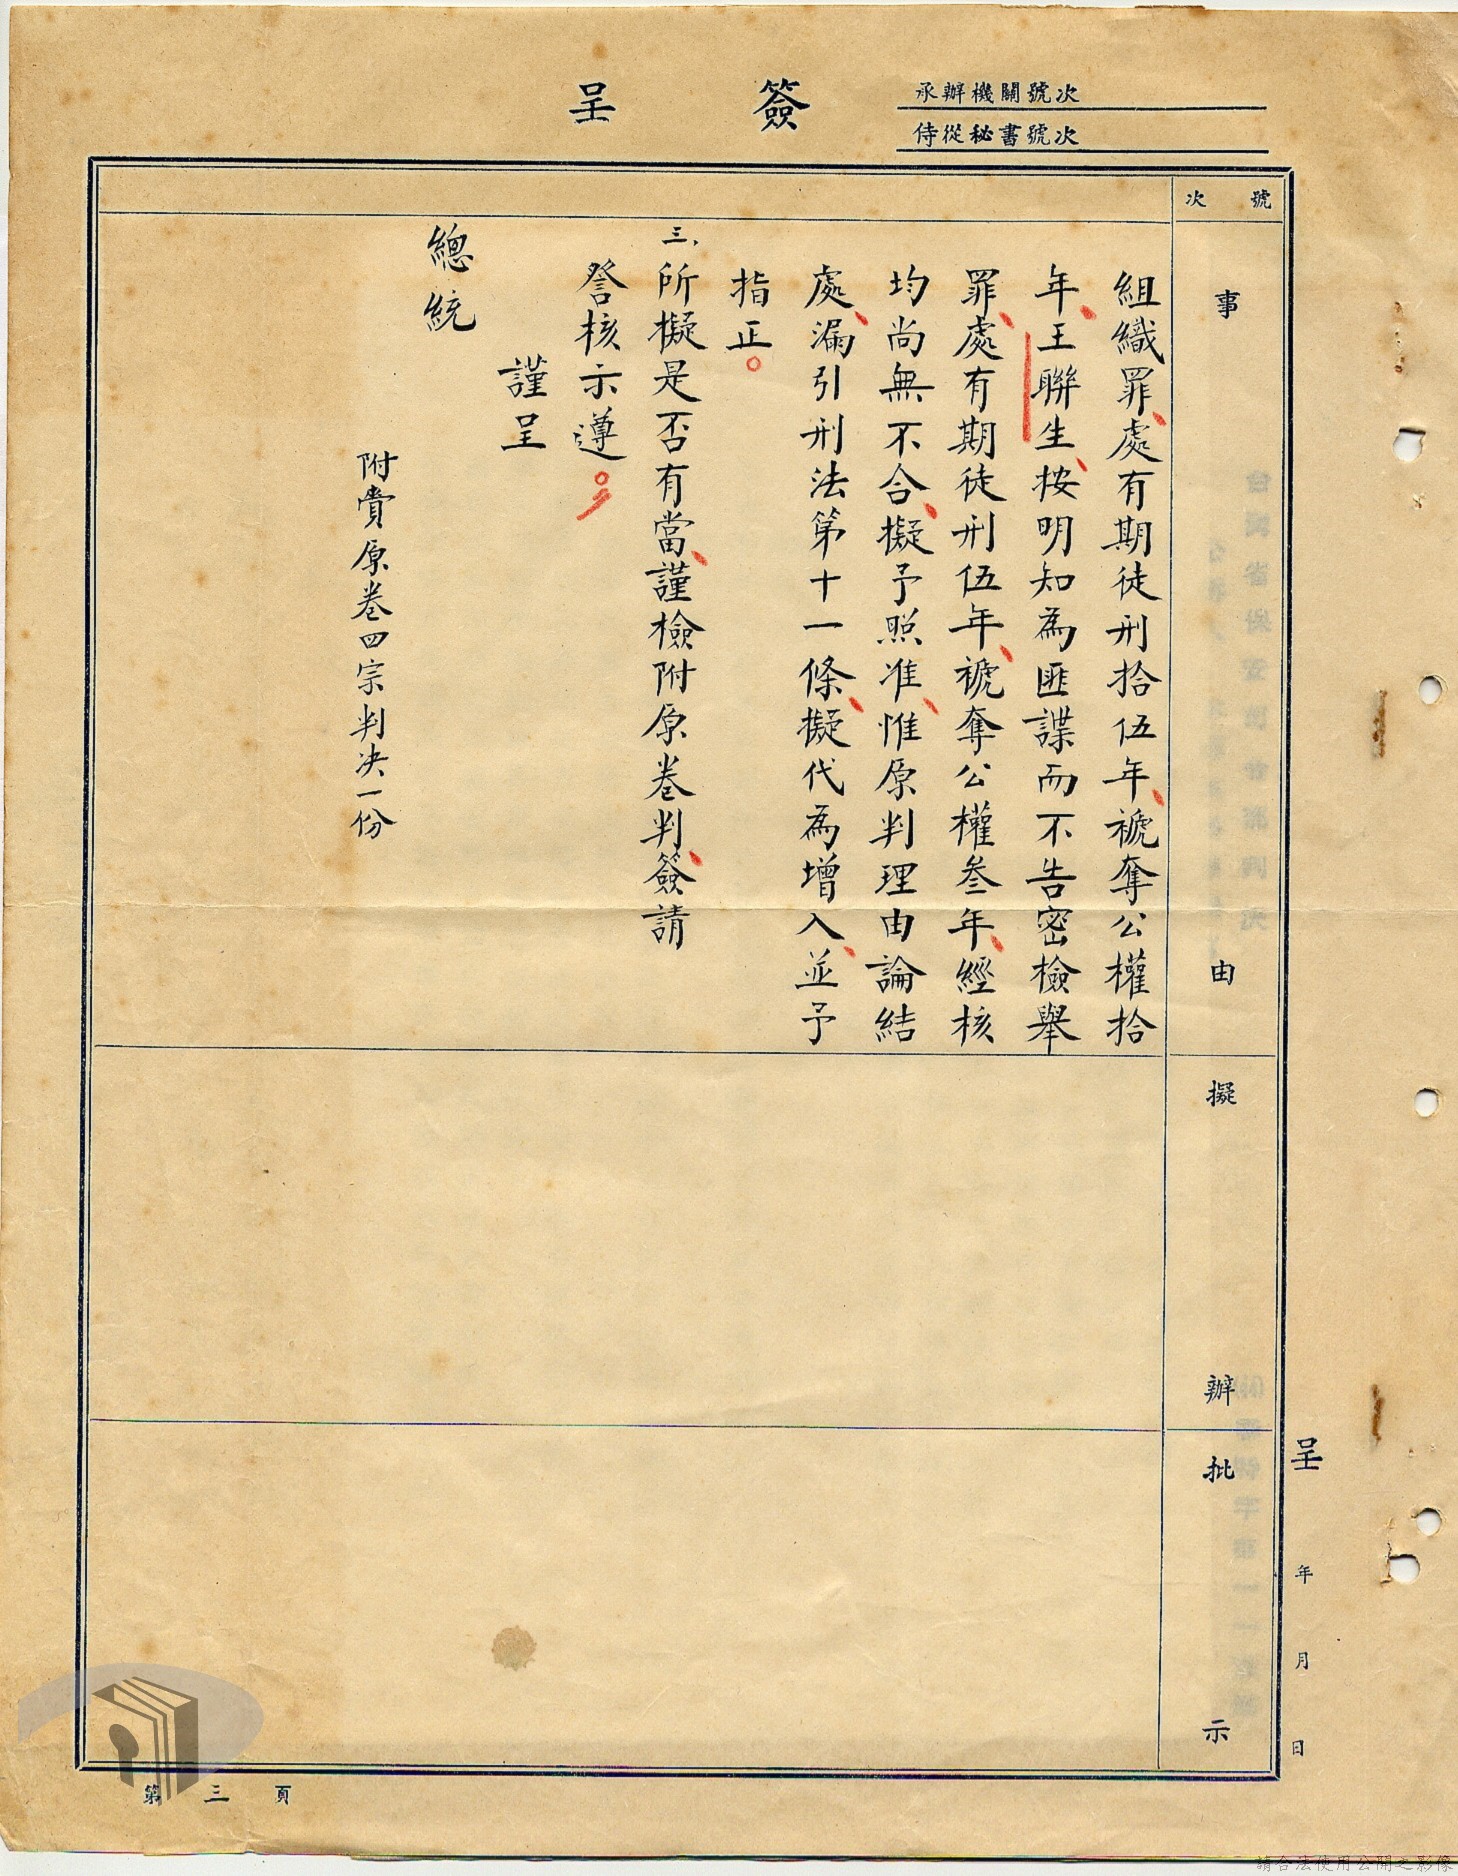 簽呈
承辦機關號次
侍從秘書號次
號次
事由
擬辦
批示
組織罪、處有期徒刑拾伍年、褫奪公權拾
年、王聯生、按明知為匪諜而不告密檢舉
罪、處有期徒刑伍年、褫奪公權叁年、經核
均尚無不合、擬予照准、惟原判理由論結
處、漏引刑法第十一條、擬代為增入、並予
指正。
三、所擬是否有當、謹檢附原卷判、簽請
詧核示遵。
謹呈
總統
附賫原卷四宗判决一份
呈 年 月 日
第三頁
請合法使用公開之影像